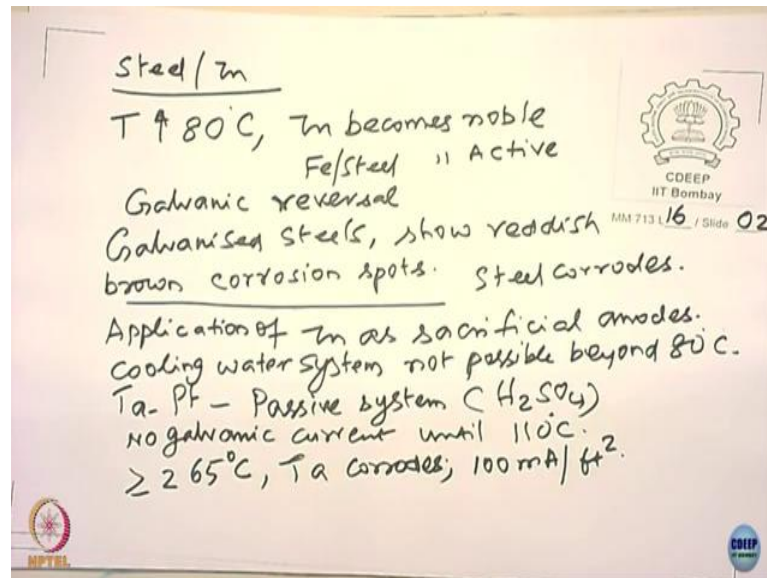 Steel/Zn
T ↑ 80°C, Zn becomes noble
Fe/Steel " Active
Galvanic reversal
Galvanised steels, show reddish
brown corrosion spots. Steel corrodes.
Application of Zn as sacrificial anodes.
Cooling water system not possible beyond 80°C.
Ta-Pt - Passive system (H2SO4)
No galvanic current until 110°C.
≥ 265°C, Ta corrodes; 100 mA/ft².
CDEEP
IIT Bombay
MM 713 L 16 / Slide 02
NPTEL
CDEEP
IIT BOMBAY